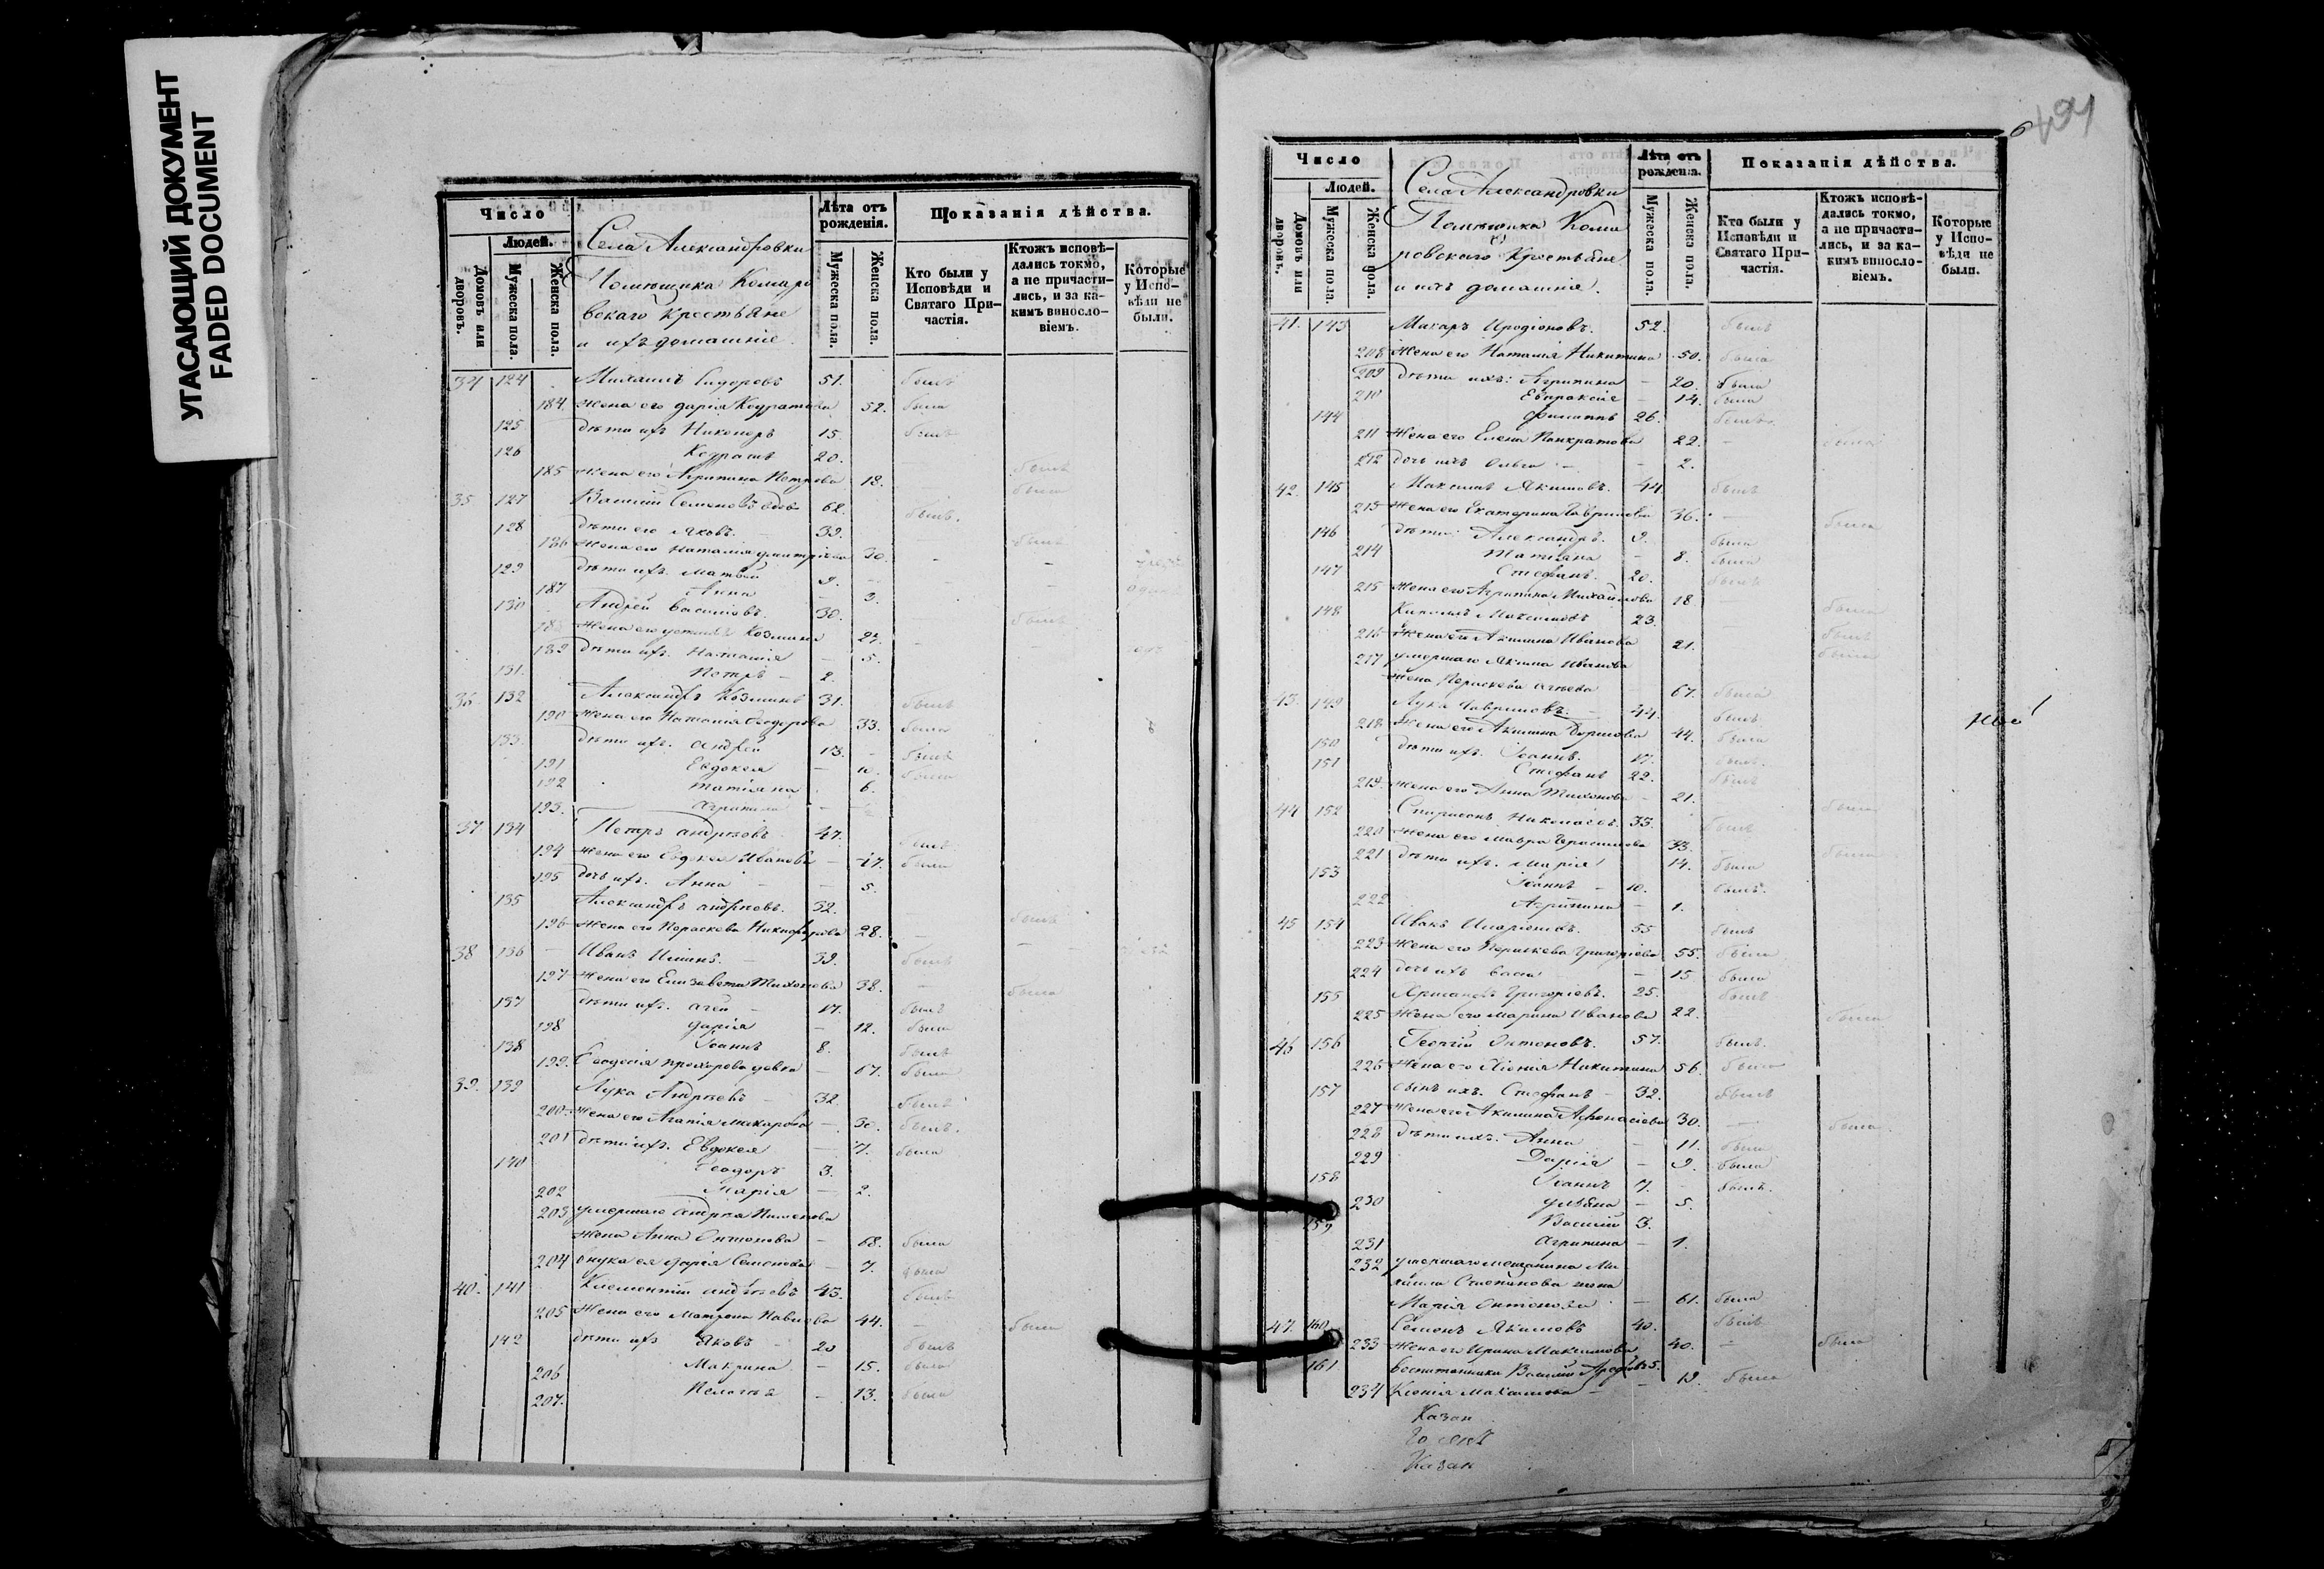 УГАСАЮЩИЙ ДОКУМЕНТ
FADED DOCUMENT
Число
Людей.
Домовъ или дворовъ.
Мужеска пола.
Женска пола.
Села Александровки
Помѣщика Комаро
вскаго Крестьяне
и ихъ домашніе.
Лѣта отъ рожденія.
Мужеска пола.
Женска пола.
Показанія дѣйства.
Кто были у Исповѣди и Святаго Причастія.
Ктожъ исповѣдались токмо, а не причастились, и за какимъ винословіемъ.
Которые у Исповѣди не были.
34 124 Михаилъ Сидоровъ 51. былъ
184. Жена его Дарія 52. была
125 дѣти ихъ Никаноръ 15. былъ
126 20.
185 Жена его Агрипина Петрова 18.
35 127 Василій Семеновъ вдовъ 62. былъ.
128 дѣти его Яковъ. 39.
186 Жена его Наталія Дмитріева 30.
129 дѣти ихъ. Матвей 9.
187 Анна 3.
130 Андрей Васильевъ. 30.
Жена его Козмина 27.
189 дѣти ихъ. Наталія 5.
131. Петръ 2.
36 132 Александръ Козминъ 31. былъ
190 Жена его Наталія Феодорова 33. была
133. дѣти ихъ. Андрей 13. былъ
191 Евдокея была
192 Татіяна 6.
193. Агрипина
37 134 Петръ Андреевъ 47.
194 Жена его Евдокея Иванова 47. была
195 дочь ихъ. Анна 5.
135 Александръ Андреевъ. 32.
196 Жена его Параскева Никифорова 28.
38 136 Иванъ Ильинъ. 39. былъ
197 Жена его Елизавета Тихонова 38. была
137 дѣти ихъ. Агей 17. былъ
198 Дарія 12. была
138 Іоаннъ 8. былъ
199. Феодосія Прохорова 67. была
39. 139 Лука Андреевъ 32. былъ
200. Жена его Агафія Макарова 30. былъ.
201 дѣти ихъ. Евдокея 7. была
140 Феодоръ 3.
202 Марія 2.
203 умершаго Андрея
Жена Анна Антонова 68. была
204 внука ея Дарія Семенова 7. была
40. 141 Климентій Андреевъ 43. былъ
205 Жена его Матрона Павлова 44. была
142 дѣти ихъ Яковъ 20 былъ
206 Макрина 15. была
207. Пелагея 13. была
494
Число
Людей.
Домовъ или дворовъ.
Мужеска пола.
Женска пола.
Села Александровки
Помѣщика Кома
ровскаго Крестьяне
и ихъ домашніе.
Лѣта отъ рожденія.
Мужеска пола.
Женска пола.
Показанія дѣйства.
Кто были у Исповѣди и Святаго Причастія.
Ктожъ исповѣдались токмо, а не причастились, и за какимъ винословіемъ.
Которые у Исповѣди не были.
41. 143 Макаръ Иродіоновъ. 52. былъ
208 Жена его Наталія Никитина 50. была
209 дѣти ихъ: Агрипина 20. была
210 Евпраксія 14. была
144 Филиппъ 26. былъ.
211 Жена его Елена Панкратова 22. была
212 дочь ихъ Ольга 2.
42. 145 Максимъ Якимовъ. 44. былъ
213 Жена его Екатерина Гаврилова 36. была
146 дѣти: Александръ. 9. была
214 Татіяна 8. была
147 Стефанъ. 20. былъ
215 Жена его Агрипина Михайлова 18.
148 Кирилъ Максимовъ 23.
216 Жена его Акилина Иванова 21.
217 умершаго Якима Иванова
жена Параскева 67. была
43. 149 Лука Гавриловъ. 44. былъ.
218 Жена его Акилина 44. была
150 дѣти ихъ. Іоаннъ. 17. былъ.
151 Стефанъ 22. былъ
219. Жена его Анна Тихонова 21. была
44 152 Спиридонъ Николаевъ. 33. былъ
220 Жена его Мавра Герасимова 33. была
221 дѣти ихъ. Марія 14. была
153 Іоаннъ 10. былъ.
222 Агрипина 1.
45 154 Иванъ 55 былъ
223 Жена его Параскева Григоріева 55. была
224 дочь ихъ 15 была
155 Григоріевъ. 25. былъ
225 Жена его Марина Иванова 22. была
46 156 Георгій Антоновъ. 57. былъ.
226 Жена его Ксенія Никитина 56. была
157 сынъ ихъ. Стефанъ 32. былъ
227 Жена его Акилина Афонасіева 30. была
228 дѣти ихъ. Анна 11. была
229 Дарія 9. была
158 Іоаннъ 7. былъ.
230 Уліяна 5.
159 Василій 3.
231 Агрипина 1.
232 умершаго мещанина Ми
хаила Степанова жена
Марія Антонова 61. была
47. 160. Семенъ Якимовъ 40. былъ
233 Жена его Ирина Максимова 40. была
161 воспитанники Василій 5.
234 Ксенія Максимова 19. была
Казан
Казан